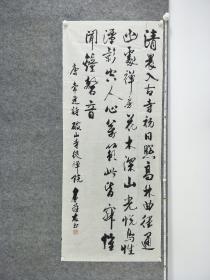 清晨入古寺初日照高林曲徑通
幽處禪房花木深山光悦鳥性
潭影空人心萬籟此皆寂惟
聞鐘磬音
唐常建詩破山寺後禪院